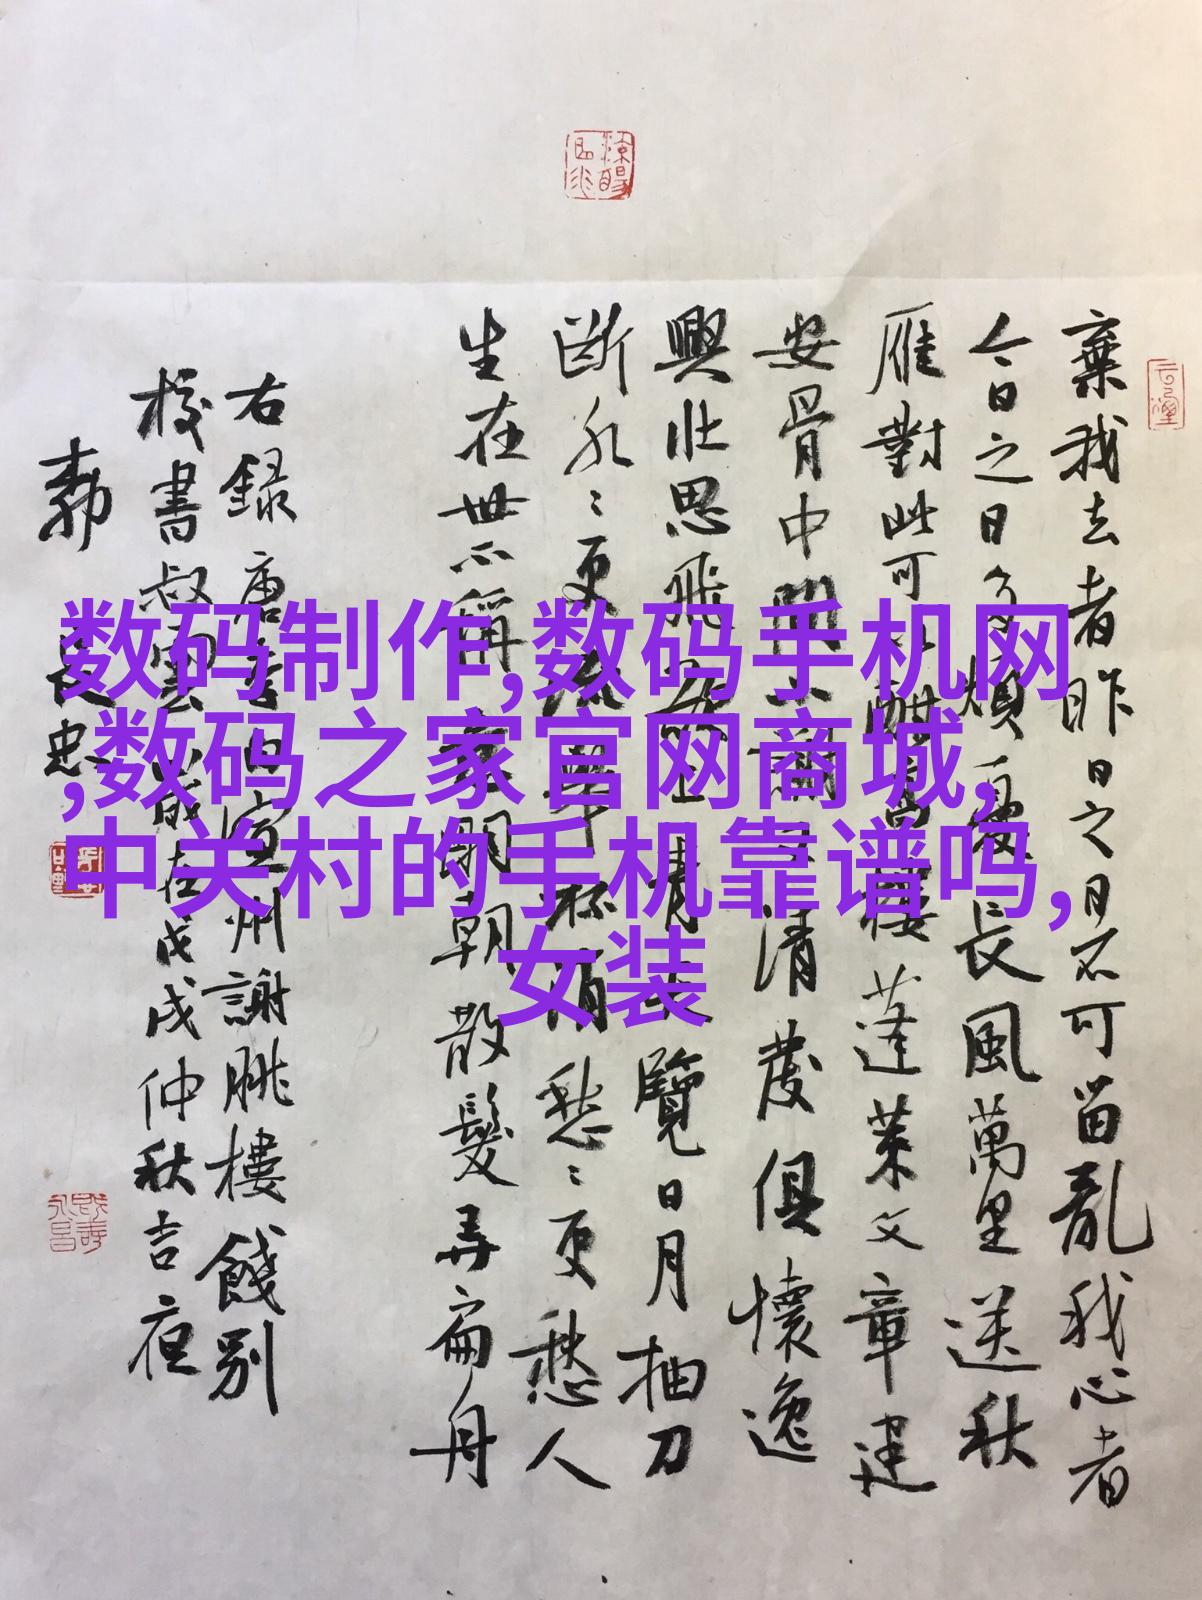 数码制作,数码手机网
,数码之家官网商城,
中关村的手机靠谱吗,
女装
棄我去者昨日之日不可留亂我心者
今日之日多煩憂長風萬里送秋
雁對此可以酣高樓蓬萊文章建
安骨中間小謝又清發俱懷逸
興壯思飛欲上青天覽日月抽刀
斷水〻更流舉杯消愁〻更愁人
生在世不稱意明朝散髮弄扁舟
右録唐李白宣州謝朓樓餞別
校書叔雲 成在戊戌仲秋吉夜
忠